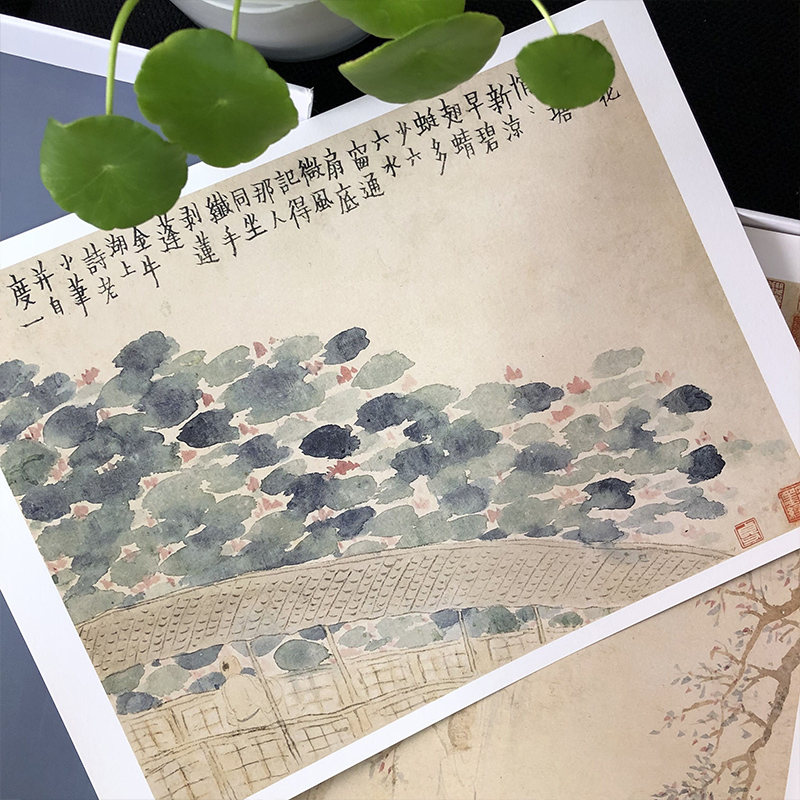 花
塘
悄〻
新涼
早碧
翅蜻
蜓多
少六
六水
窗通
扇底
微風
記得
那人
同坐
纖手
剝蓮
蓬
金牛
湖上
詩老
小筆
并自
度一